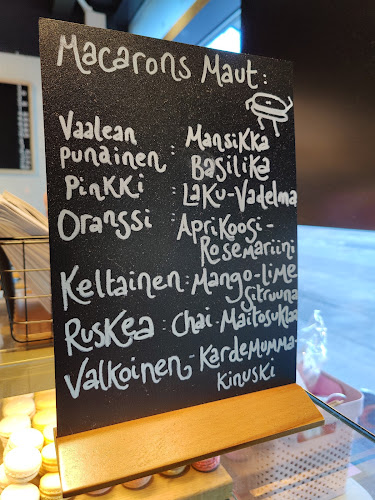 Macarons Maut:
Vaalean Mansikka
punainen: Basilika
Pinkki: Laku-Vadelma
Oranssi: Aprikoosi-
Rosemariini
Keltainen: Mango-Lime
Sitruuna
Ruskea: Chai-Maitosuklaa
Valkoinen-Kardemumma-
Kinuski